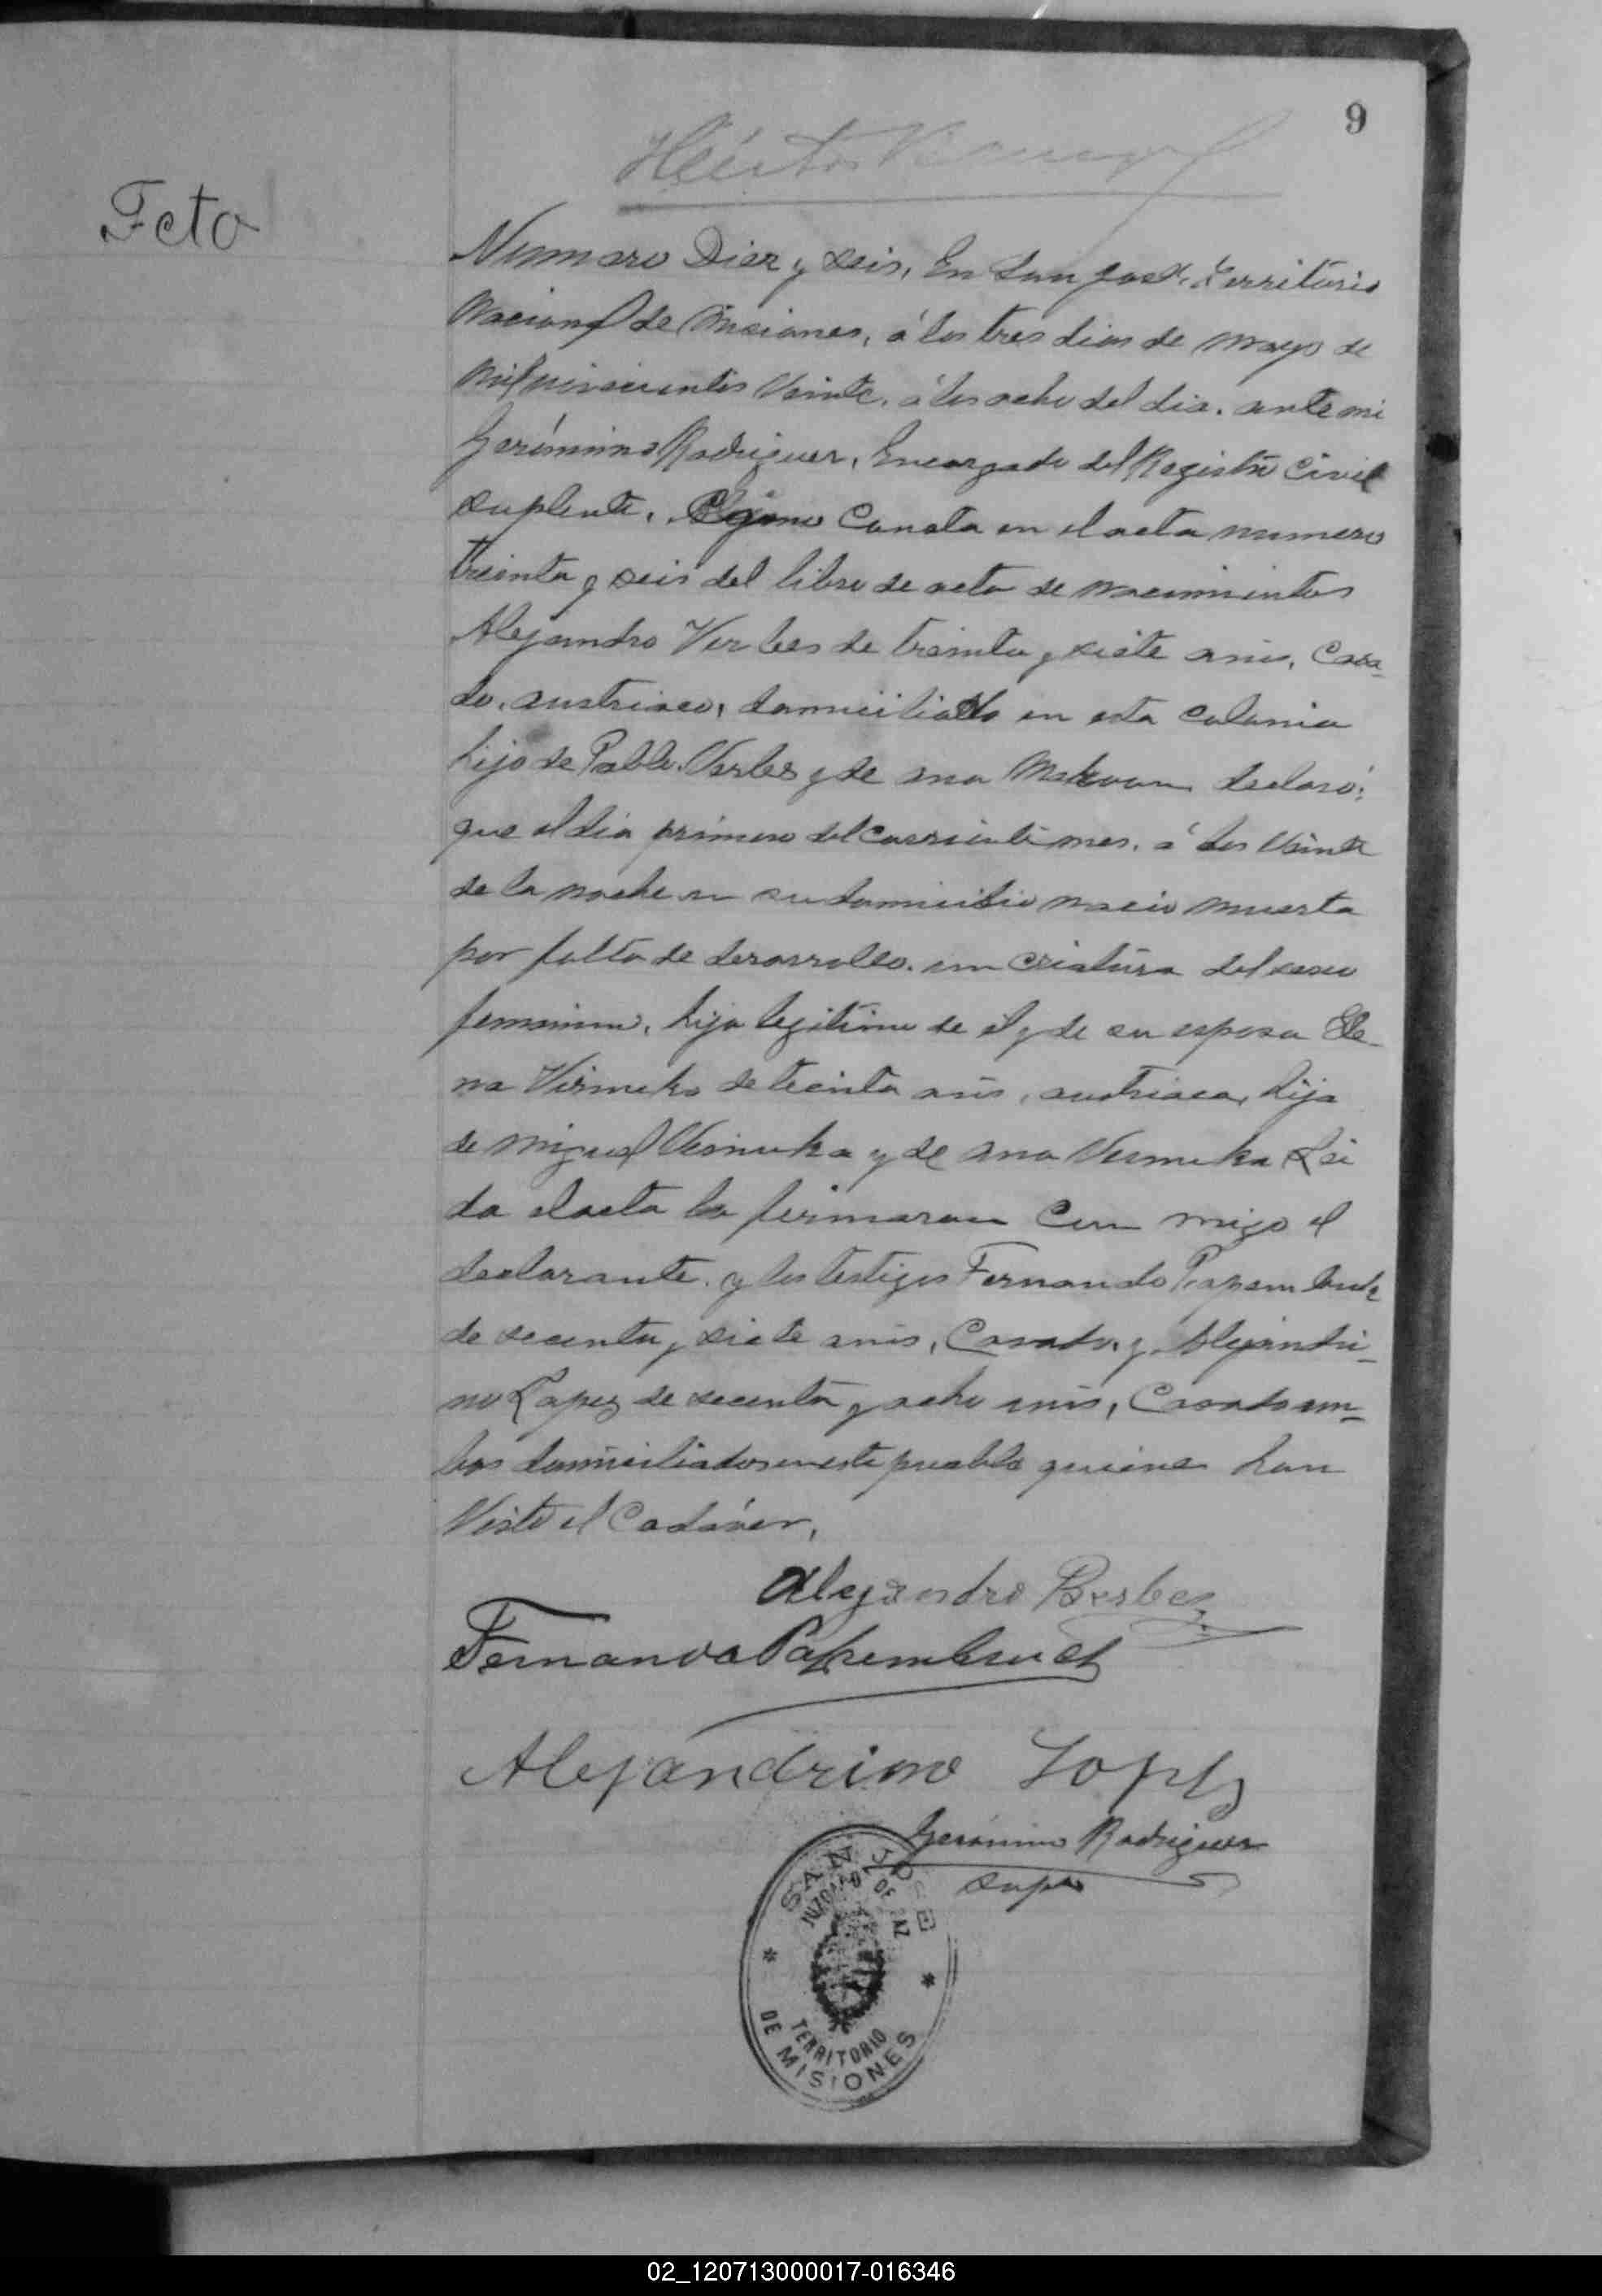 9
Feto
Numero Diez y seis, En San José, Territorio
Nacional de Misiones, á los tres dias de mayo de
mil novecientos Veinte, á las ocho del dia, ante mi
Gerónimo Rodriguez, Encargado del Registro Civil
Suplente, Consta en el acta numero
treinta y seis del libro de acta de nacimientos
Alejandro Verbes de treinta y siete años, Casa-
do, austriaco, domiciliado en esta Colonia
hijo de Pablo Verbes y de Ana declaró:
que el dia primero del corriente mes, á las Veinte
de la noche en su domicilio nacio muerta
por falta de desarrollo, un criatura del sexo
femenino, hija legitima de el y de su esposa Ele-
na de treinta años, austriaca, hija
de Miguel y de Ana Lei
da el acta la firmaron Con migo el
declarante, y los testigos Fernando
de secenta y siete anis, Casado, y Alejandri-
no Lopez de secenta y ocho anis, Casado am-
bos domiciliados en este pueblo quienes han
Visto el Cadáver,
Alejandro Berbes
Fernando Papembruch
Alejandrino Lopez
Gerónimo Rodriguez
Supte
SAN JOSE
JUZGADO DE PAZ
TERRITORIO
DE MISIONES
02_120713000017-016346